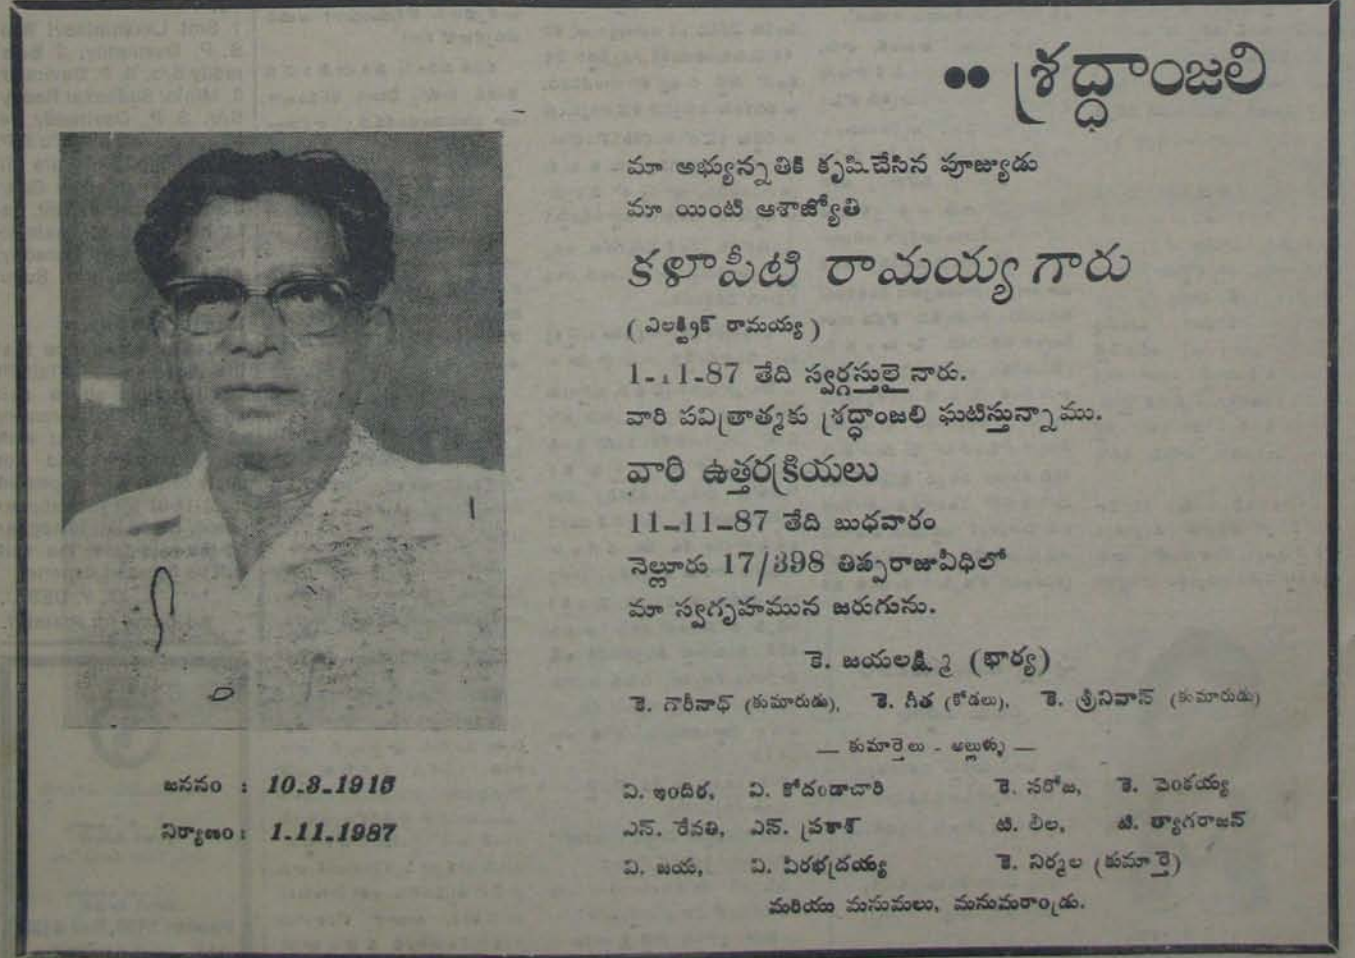 •• శ్రద్ధాంజలి
మా అభ్యున్నతికి కృషిచేసిన పూజ్యుడు
మా యింటి ఆశాజ్యోతి
కళాపీటి రామయ్య గారు
( ఎలక్ట్రిక్ రామయ్య )
1-11-87 తేది స్వర్గస్తులైనారు.
వారి పవిత్రాత్మకు శ్రద్ధాంజలి ఘటిస్తున్నాము.
వారి ఉత్తరక్రియలు
11-11-87 తేది బుధవారం
నెల్లూరు 17/398 తిప్పరాజువీధిలో
మా స్వగృహమున జరుగును.
కె. జయలక్ష్మి (భార్య)
కె. గోపీనాధ్ (కుమారుడు), కె. గీత (కోడలు), కె. శ్రీనివాస్ (కుమారుడు)
— కుమార్తెలు - అల్లుళ్ళు —
వి. ఇందిర, వి. కోదండాచారి కె. సరోజ, కె. వెంకయ్య
ఎన్. రేవతి, ఎన్. ప్రకాశ్ టి. లీల, టి. త్యాగరాజన్
వి. జయ, వి. వీరభద్రయ్య కె. నిర్మల (కుమార్తె)
మరియు మనుమలు, మనుమరాండ్రు.
జననం : 10-3-1915
నిర్యాణం : 1.11.1987